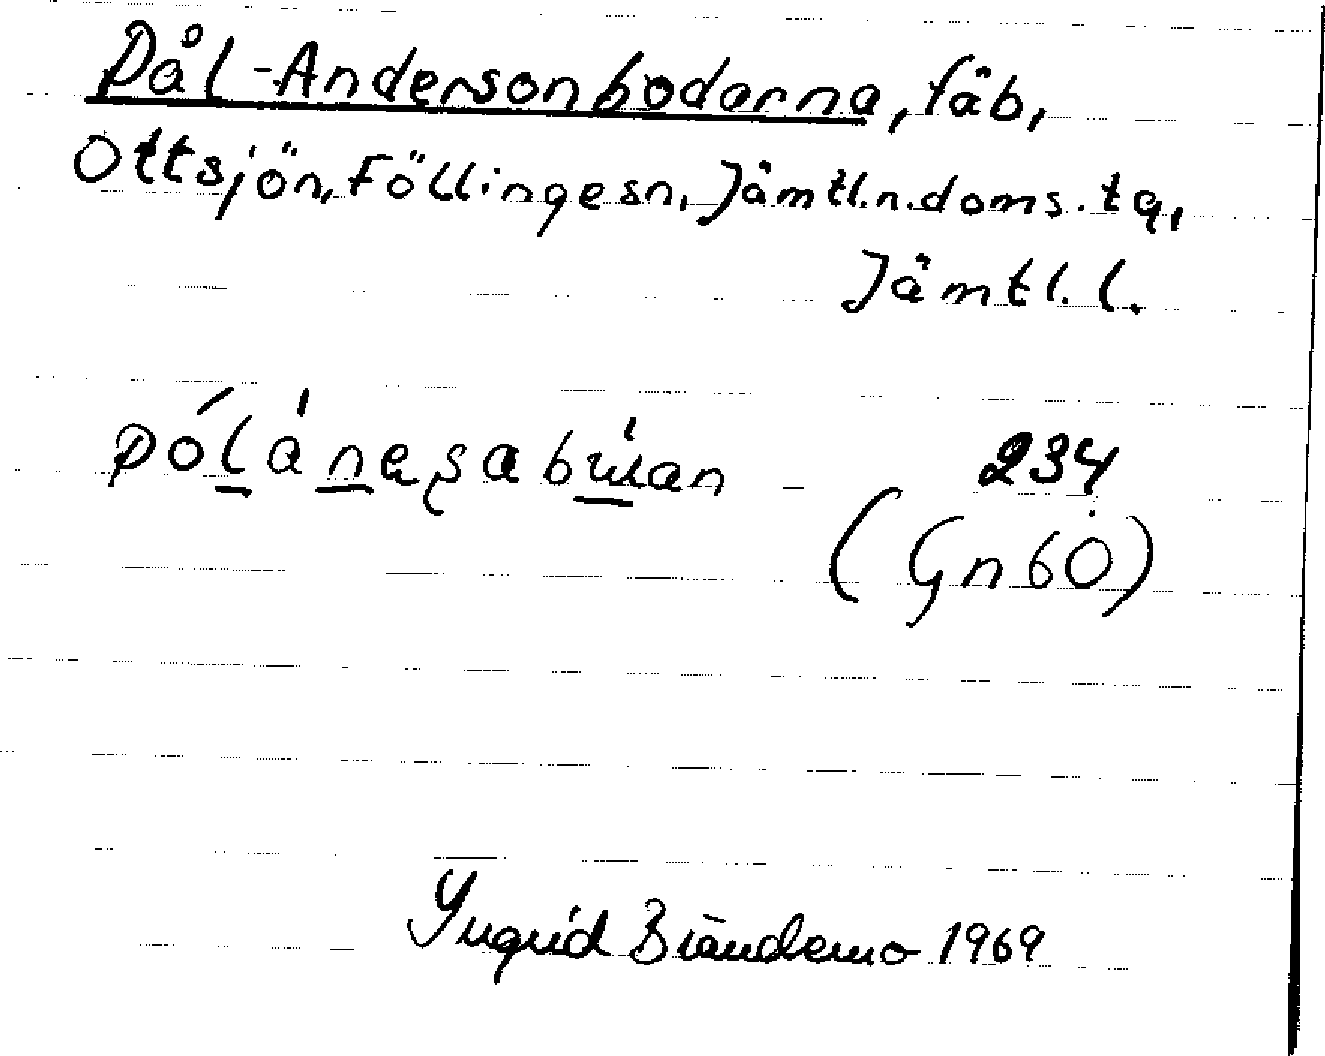 Pål-Andersonbodarna, fäb,
Ottsjön, Föllingesn, Jämtl.n.doms.tg,
Jämtl.l.
234
(Gn60)
Ingrid Brändemo 1969